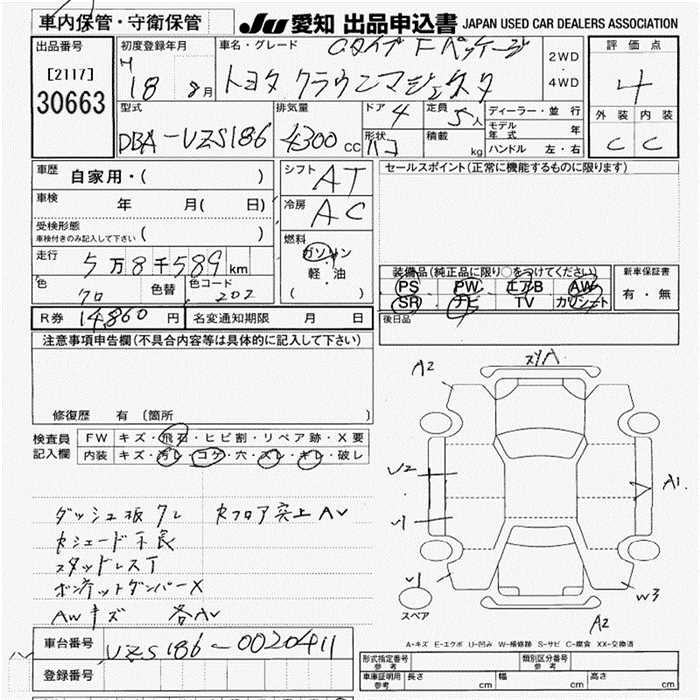 車内保管・守衛保管
JU 愛知 出品申込書 JAPAN USED CAR DEALERS ASSOCIATION
出品番号
[2117]
30663
初度登録年月
H
18 8月
車名・グレード
Cタイプ Fパッケージ
トヨタ クラウンマジェスタ
2WD
・
4WD
評価点
4
外装 内装
C C
型式
DBA-UZS186
排気量
4300 cc
ドア 4
形状
定員 5人
積載 kg
ディーラー・並行
モデル年式 年
ハンドル 左・右
車歴 自家用・( )
車検 年 月( 日)
受検形態
車検付きのみ記入して下さい ( )
走行 5万8千589km
色 クロ 色替 色コード 202
シフト AT
冷房 AC
燃料
ガソリン
軽・油
( )
セールスポイント(正常に機能するものに限ります)
装備品(純正品に限り○をつけてください)
PS PW エアB AW
SR ナビ TV カワシート
新車保証書
有・無
後日品
R券 14,860円 名変通知期限 月 日
注意事項申告欄(不具合内容等は具体的に記入して下さい)
修復歴 有〔箇所
検査員記入欄
FW キズ・飛石・ヒビ割・リペア跡・X要
内装 キズ・汚レ・コゲ・穴・スレ・キレ・破レ
ダッシュ板クレ
RフロアDE突上AU
Rシェード不良
スタッドレスT
ボンネットダンパーX
AWキズ 各AU
車台番号 UZS186-0020411
登録番号
A2
A1
U2
U1
U1
スペア
W3
A2
A-キズ E-エクボ U-凹み W-補修跡 S-サビ C-腐食 XX-交換済
形式指定番号
参考
類別区分番号
参考
車庫証明用
参考
長さ cm
幅 cm
高さ cm